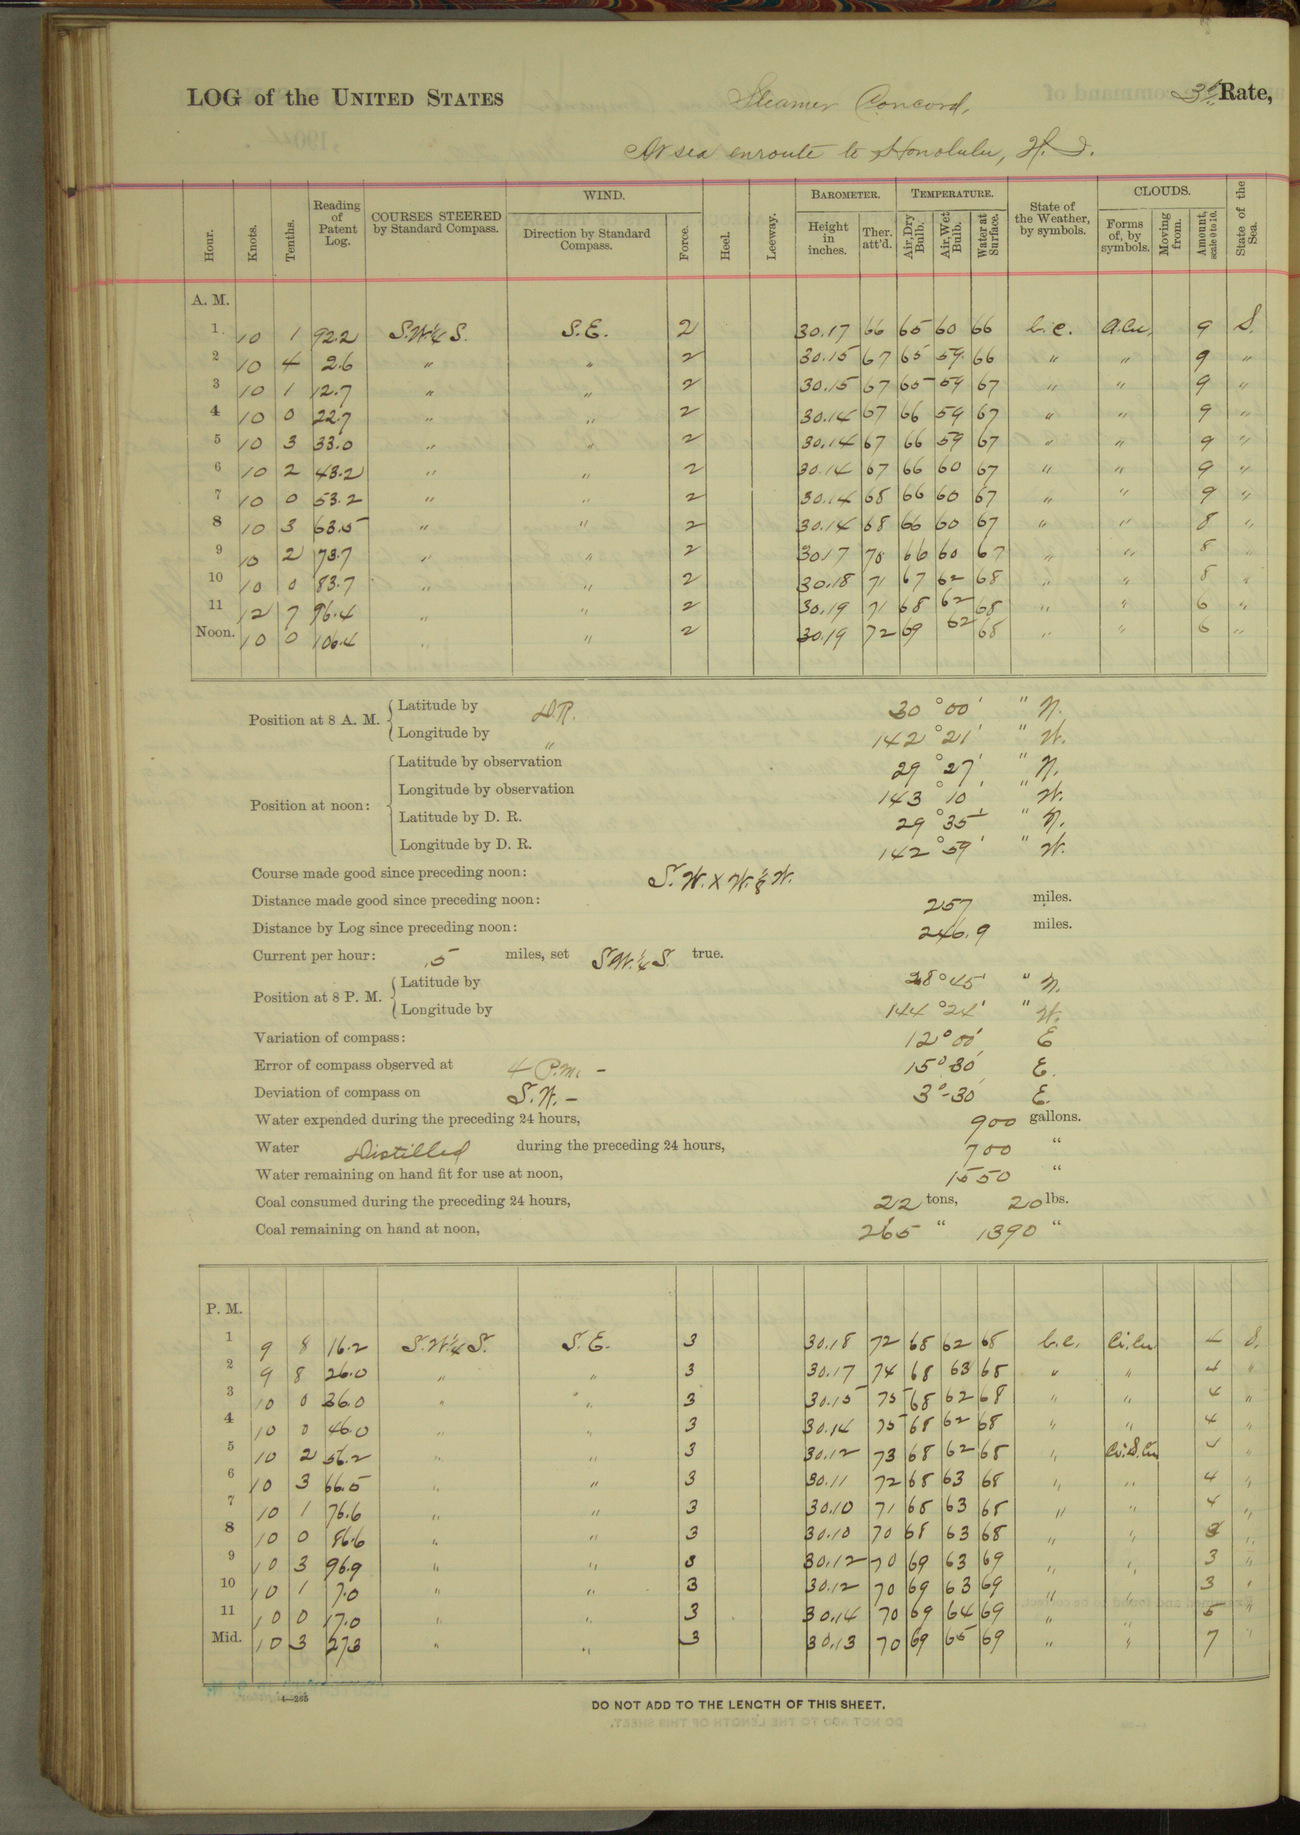 LOG of the UNITED STATES Steamer Concord, 3d Rate,
At sea enroute to Honolulu, H. I.
Hour. Knots. Tenths. Reading of Patent Log. COURSES STEERED by Standard Compass. WIND. Direction by Standard Compass. Force. Heel. Leeway. BAROMETER. Height in inches. Ther. att'd. TEMPERATURE. Air, Dry Bulb. Air, Wet Bulb. Water at Surface. State of the Weather, by symbols. CLOUDS. Forms of, by symbols. Moving from. Amount, scale 0 to 10. State of the Sea.
A. M.
1 10 1 92.2 S.W¼S. S.E. 2 30.17 66 65 60 66 b.c. a.cu. 9 S.
2 10 4 2.6 " " 2 30.15 67 65 59 66 " " 9 "
3 10 1 12.7 " " 2 30.15 67 65 59 67 " " 9 "
4 10 0 22.7 " " 2 30.14 67 66 59 67 " " 9 "
5 10 3 33.0 " " 2 30.14 67 66 59 67 " " 9 "
6 10 2 43.2 " " 2 30.14 67 66 60 67 " " 9 "
7 10 0 53.2 " " 2 30.14 68 66 60 67 " " 9 "
8 10 3 63.5 " " 2 30.14 68 66 60 67 " " 8 "
9 10 2 73.7 " " 2 30.17 70 66 60 67 " " 8 "
10 10 0 83.7 " " 2 30.18 71 67 62 68 " " 8 "
11 12 7 96.4 " " 2 30.19 71 68 62 68 " " 6 "
Noon. 10 0 106.4 " " 2 30.19 72 69 62 68 " " 6 "
Position at 8 A. M. Latitude by D.R. 30 ° 00 ' " N.
Longitude by " 142 ° 21 ' " W.
Position at noon: Latitude by observation 29 ° 27 ' " N.
Longitude by observation 143 ° 10 ' " W.
Latitude by D. R. 29 ° 35 ' " N.
Longitude by D. R. 142 ° 59 ' " W.
Course made good since preceding noon: S.W. x W. ⅛ W.
Distance made good since preceding noon: 257 miles.
Distance by Log since preceding noon: 246.9 miles.
Current per hour: .5 miles, set S.W.¼S. true.
Position at 8 P. M. Latitude by 28 ° 45 ' " N.
Longitude by 144 ° 24 ' " W.
Variation of compass: 12° 00' E
Error of compass observed at 4 P.m. – 15° 30' E.
Deviation of compass on S.W. – 3°-30' E.
Water expended during the preceding 24 hours, 900 gallons.
Water Distilled during the preceding 24 hours, 700 "
Water remaining on hand fit for use at noon, 1550 "
Coal consumed during the preceding 24 hours, 22 tons, 20 lbs.
Coal remaining on hand at noon, 265 " 1390 "
P. M.
1 9 8 16.2 S.W¼S. S.E. 3 30.18 72 68 62 68 b.c. Ci.cu 4 S.
2 9 8 26.0 " " 3 30.17 74 68 63 68 " " 4 "
3 10 0 36.0 " " 3 30.15 75 68 62 68 " " 4 "
4 10 0 46.0 " " 3 30.14 75 68 62 68 " " 4 "
5 10 2 56.2 " " 3 30.12 73 68 62 68 " Ci.S.Cu 4 "
6 10 3 66.5 " " 3 30.11 72 68 63 68 " " 4 "
7 10 1 76.6 " " 3 30.10 71 68 63 68 " " 4 "
8 10 0 86.6 " " 3 30.10 70 68 63 68 " " 3 "
9 10 3 96.9 " " 3 30.12 70 69 63 69 " " 3 "
10 10 1 7.0 " " 3 30.12 70 69 63 69 " " 3 "
11 10 0 17.0 " " 3 30.14 70 69 64 69 " " 5 "
Mid. 10 3 27.3 " " 3 30.13 70 69 65 69 " " 7 "
4—265
DO NOT ADD TO THE LENGTH OF THIS SHEET.